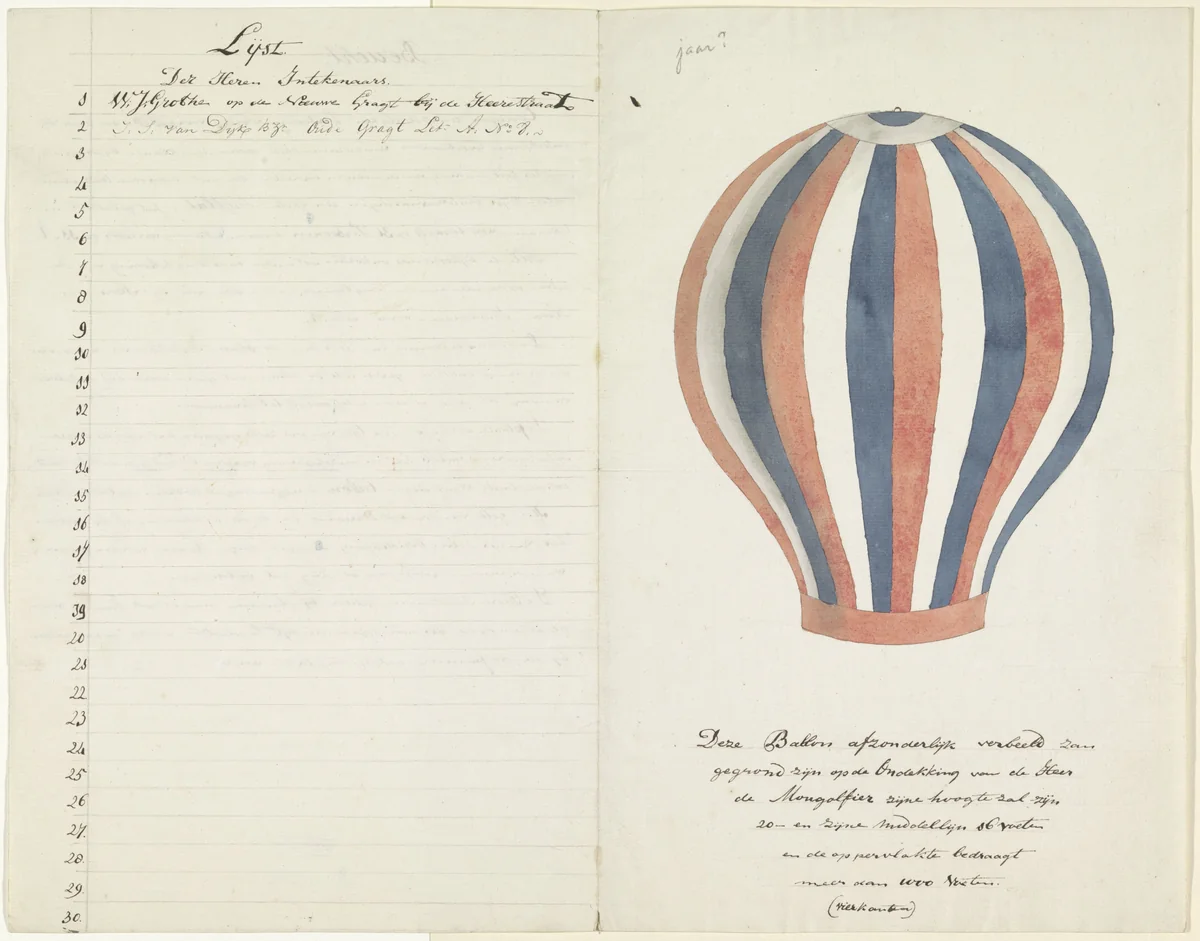 Lijst.
Der Heren Intekenaars.
1 W. J. Grothe op de Nieuwe Gragt bij de Heerestraat
2 van Dijk Oude Gragt Let: A. No
3
4
5
6
7
8
9
10
11
12
13
14
15
16
17
18
19
20
21
22
23
24
25
26
27.
28.
29.
30.
jaar?
Deze Ballon afzonderlijk verbeeld zan
gegrond zijn op de Ondekking van de Heer
de Mongolfier zijne hoogte zal zijn
20– en zijne middellijn 16 voeten
en de oppervlakte bedraagt
meer dan 1000 Voeten.
(vierkanten)